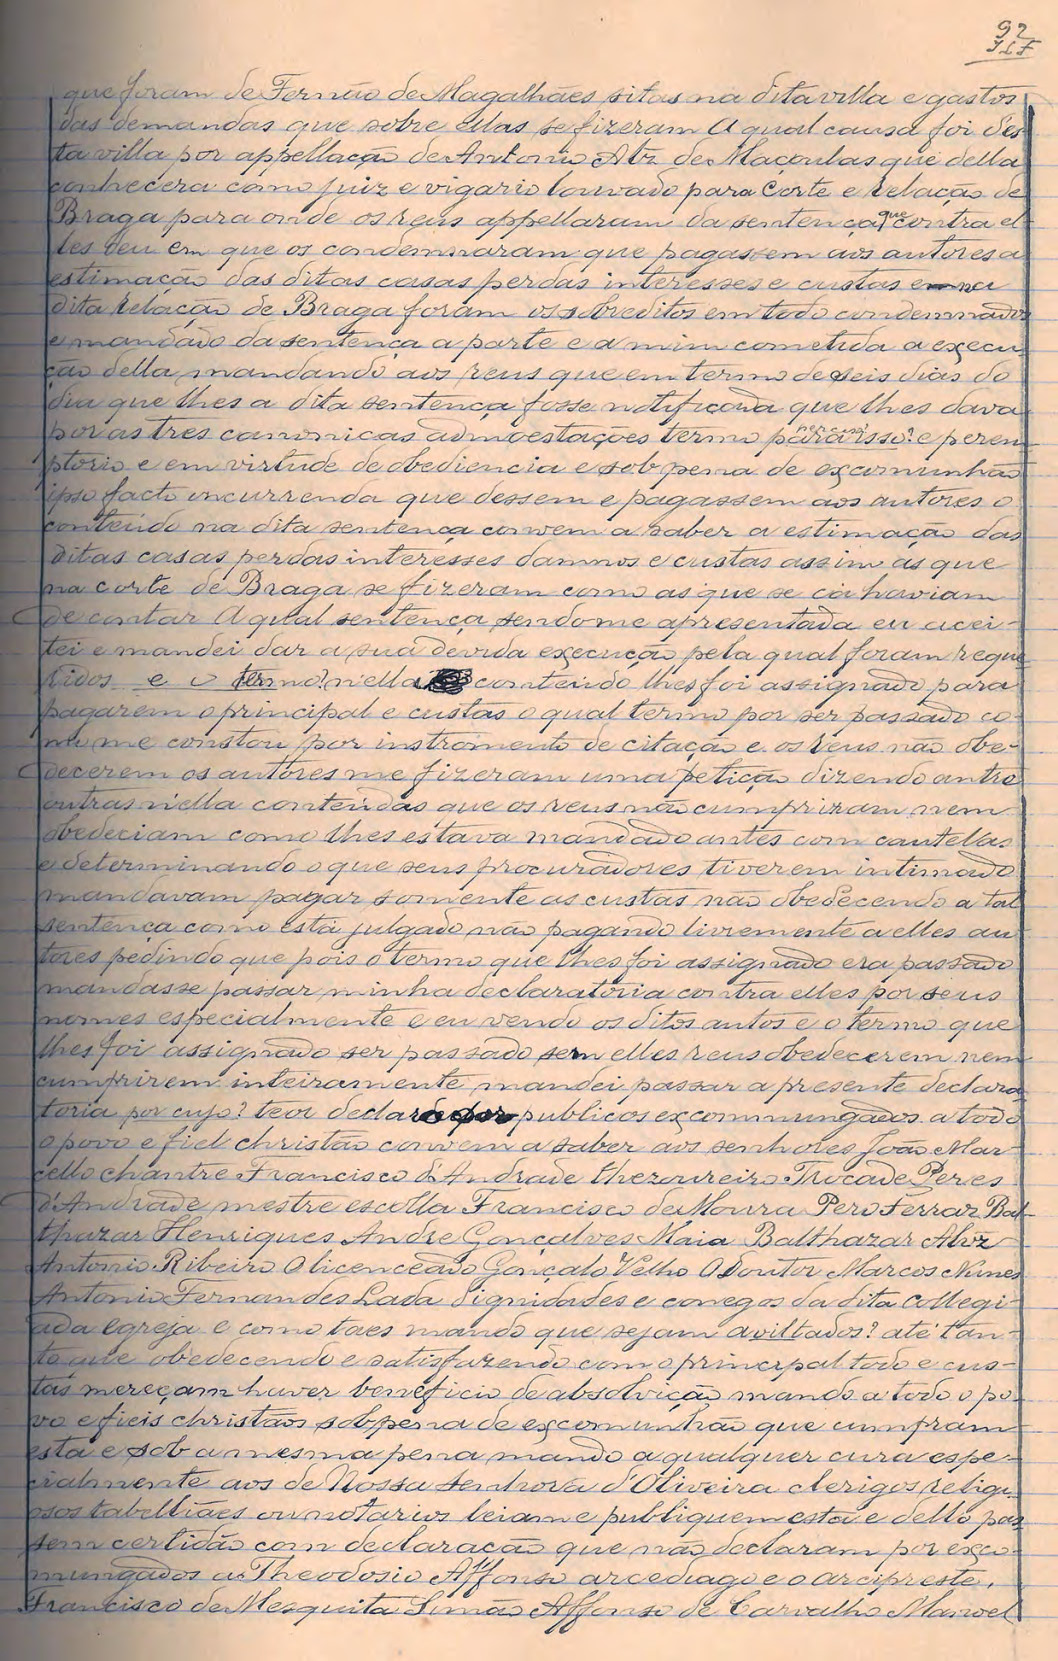 92
que foram de Fernão de Magalhães sitas na dita villa e gastos
das demandas que sobre ellas se fizeram A qual causa foi d'es-
ta villa por appellação de Antonio Alz de Maçoulas que della
conhecera como juiz e vigario louvado para Corte e relação de
Braga para onde os reus appellaram da sentença que contra el-
les deu em que os condemnaram que pagassem aos autores a
estimação das ditas casas perdas interesses e custas e na
dita relação de Braga foram os sobreditos em todo condemnados
e mandado da sentença a parte e a mim cometida a execu-
ção della mandando aos reus que em termo de seis dias do
dia que lhes a dita sentença fosse notificada que lhes dava
por as tres canonicas admoestações termo para isso? e perem-
ptorio e em virtude de obediencia e sob pena de excomunhão
ipso facto incurrenda que dessem e pagassem aos autores o
conteúdo na dita sentença convem a saber a estimação das
ditas casas perdas interesses damnos e custas assim as que
na corte de Braga se fizeram como as que se cá haviam
de contar A qual sentença sendo me apresentada eu acei-
tei e mandei dar a sua devida execução pela qual foram reque-
ridos e o termo? n'ella conteúdo lhes foi assignado para
pagarem o principal e custas o qual termo por ser passado co-
mo me constou por instromento de citação e os reus não obe-
decerem os autores me fizeram uma petição dizendo antre
outras n'ella contendas que os reus não cumpriram nem
obedeciam como lhes estava mandado antes com cautellas
e determinando o que seus procuradores tiverem intimado
mandavam pagar somente as custas não obedecendo a tal
sentença como está julgado não pagando livremente a elles au-
tores pedindo que pois o termo que lhes foi assignado era passado
mandasse passar minha declaratoria contra elles por seus
nomes especialmente e eu vendo os ditos autos e o termo que
lhes foi assignado ser passado sem elles reus obedecerem nem
cumprirem inteiramente mandei passar a presente declara-
toria por cujo? teor declaro por publicos excommungados a todo
o povo e fiel christão convem a saber aos senhores João Mar-
cello chantre Francisco d'Andrade thezoureiro Trocade Peres
d'Andrade mestre escolla Francisco de Moura Pero Ferraz Bal-
thazar Henriques Andre Gonçalves Maia Balthazar Alvz
Antonio Ribeiro O licenceado Gonçalo Velho O Doutor Marcos Nunes
Antonio Fernandes Lada dignidades e conegos da dita collegi-
ada egreja e como taes mando que sejam aviltados? até tan-
to que obedecendo e satisfazendo com o principal todo e cus-
tas mereçam haver beneficio de absolvição mando a todo o po-
vo e fieis christãos sob pena de excomunhão que cumpram
esta e sob a mesma pena mando a qualquer cura espe-
cialmente aos de Nossa senhora d'Oliveira clerigos religi-
osos tabelliães ou notarios leiam e publiquem esta e dello pas-
sem certidão com declaração que não declaram por exco-
mungados a Theodosio Affonso arcediago e o arcipreste,
Francisco de Mesquita Simão Affonso de Carvalho Manoel